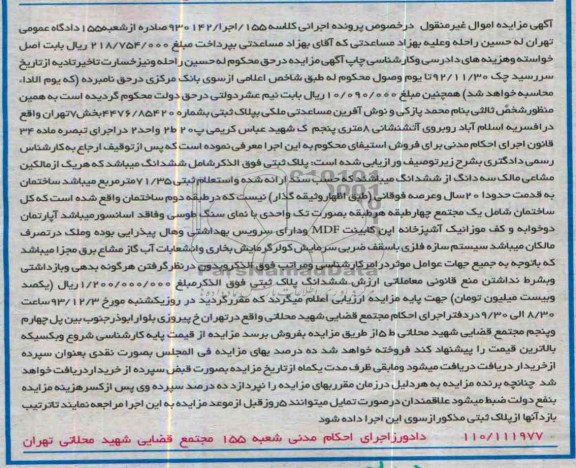 آگهی مزایده اموال غیرمنقول درخصوص پرونده اجرائی کلاسه ۱۵۵/اجرا/۹۳۰۱۴۲ صادره ازشعبه ۱۵۵ دادگاه عمومی
تهران له حسین راحله وعلیه بهزاد مساعدتی که آقای بهزاد مساعدتی بپرداخت مبلغ ۲۱۸/۷۵۴/۰۰۰ ریال بابت اصل
خواسته وهزینه های دادرسی وکارشناسی چاپ آگهی مزایده درحق محکوم له حسین راحله ونیزخسارت تاخیرتادیه ازتاریخ
سررسید چک ۹۲/۱۱/۳۰ تا یوم وصول محکوم له طبق شاخص اعلامی ازسوی بانک مرکزی درحق نامبرده (که یوم الادا،
محاسبه خواهد شد) همچنین مبلغ ۱۰/۰۹۰/۰۰۰ ریال بابت نیم عشردولتی درحق دولت محکوم گردیده است به همین
منظورشخص ثالثی بنام محمد پازکی و نوش آفرین مساعدتی ملکی بپلاک ثبتی بشماره ۴۴۷۶/۸۵۴۲۰۰ بخش ۷ تهران واقع
درافسریه اسلام آباد روبروی آتشنشانی ۸متری پنجم ک شهید عباس کریمی پ ۲۰ ط۲ واحد۲ دراجرای تبصره ماده ۳۴
قانون اجرای احکام مدنی برای فروش استیفای محکوم به این اجرا معرفی نموده است که پس ازتوقیف ارجاع به کارشناس
رسمی دادگستری بشرح زیرتوصیف ورازیابی شده است: پلاک ثبتی فوق الذکرشامل ششدانگ میباشد که هریک ازمالکین
مشاعی مالک سه دانگ از ششدانگ میباشد که حسب سند ارائه شده واستعلام ثبتی ۷۱/۳۵ مترمربع میباشد ساختمان
به قدمت حدودا ۲۰ سال وعرصه فوقانی (طبق اظهاروثیقه گذار) نیست که درطبقه دوم ساختمان واقع شده است که کل
ساختمان شامل یک مجتمع چهارطبقه هرطبقه بصورت تک واحدی با نمای سنگ طوسی وفاقد اسانسورمیباشد آپارتمان
دوخوابه و کف موزائیک آشپزخانه اپن کابینت MDF ودارای سرویس بهداشتی وهال پذیرایی بوده وملک درتصرف
مالکان میباشد سیستم سازه فلزی باسقف ضربی سرمایش کولرگرمایش بخاری وانشعابات آب گاز مشاع برق مجزا میباشد
که باتوجه به جمیع جهات عوامل موثردرامرکارشناسی ومراتب فوق الذکرمجدون درنظرگرفتن هرگونه بدهی وبازداشتی
وبشرط نداشتن منع قانونی معاملاتی ارزش ششدانگ پلاک ثبتی فوق الذکرمبلغ ۱/۲۰۰/۰۰۰/۰۰۰ ریال (یکصد
وبیست میلیون تومان) جهت پایه مزایده ارزیابی اعلام میگردد که مقررگردید در روزیکشنبه مورخ ۹۳/۱۲/۳ ساعت
۸/۳۰ الی ۹/۳۰ دردفتراجرای احکام مجتمع قضایی شهید محلاتی واقع درتهران خ پیروزی بلوارابوذرجنوب بین پل چهارم
وپنجم مجتمع قضایی شهید محلاتی ط ۵ از طریق مزایده بفروش برسد مزایده از قیمت پایه کارشناسی شروع وبکسیکه
بالاترین قیمت را پیشنهاد کند فروخته خواهد شد ده درصد بهای مزایده فی المجلس بصورت نقدی بعنوان سپرده
ازخریدار دریافت دریافت میشود ومابقی ظرف مدت یکماه ازتاریخ مزایده بصورت قبض سپرده از خریداردریافت خواهد
شد چنانچه برنده مزایده به هردلیل درزمان مقرربهای مزایده را نپردازد ده درصد سپرده وی پس ازکسرهزینه مزایده
بنفع دولت ضبط میشود علاقمندان درصورت تمایل میتوانند ۵ روزقبل از موعد مزایده به این اجرا مراجعه نمایند تاترتیب
بازدآنها ازپلاک ثبتی مذکورازسوی این اجرا داده شود
۱۱۰/۱۱۱۹۷۷ دادورزاجرای احکام مدنی شعبه ۱۵۵ مجتمع قضایی شهید محلاتی تهران